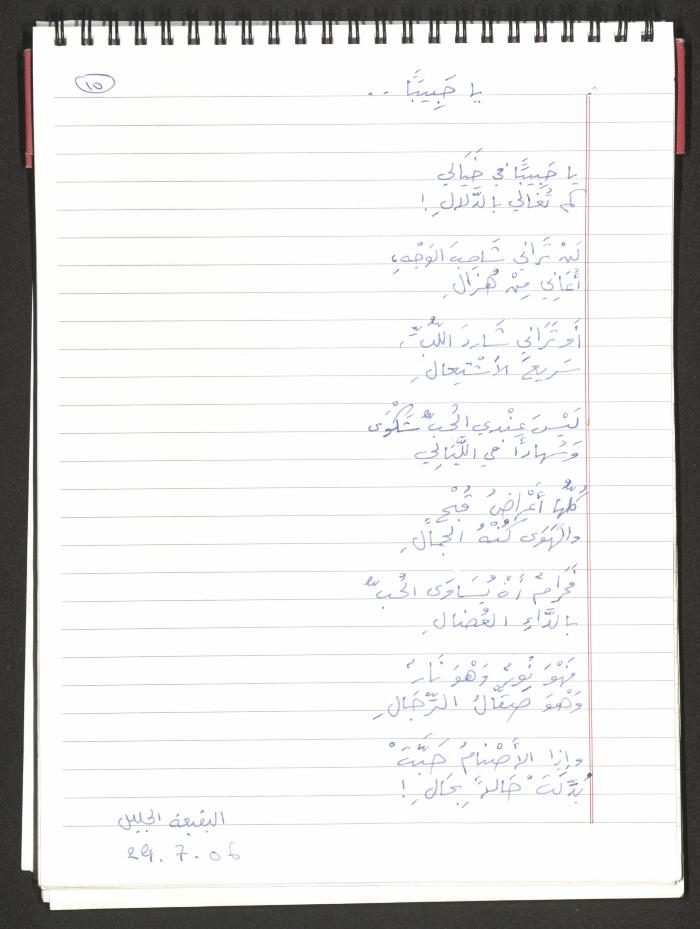 ١٥
يا حَبِيبًا ..
يا حَبِيبًا في خَيَالي
كم تُغَالي بالدَّلالِ !
لَنْ تَراني شَاحِبَ الوَجْهِ،
أُعَاني مِنْ هُزالِ
أو تَرَاني شَارِدَ اللُّبِّ،
سَريعَ الاشْتِعالِ
لَيْسَ عِنْدي الحُبُّ شَكْوَى
وَسُهادًا في اللَّيَالِي
كُلُّها أَعْرَاضُ قُبْحٍ
والهَوَى كُنْهُ الجمالِ
فَحَرامٌ أَنْ يُسَاوَى الحُبُّ
بالدَّاءِ العُضالِ
فَهْوَ نُورٌ وَهْوَ نَارٌ
وَهْوَ صَقَّالُ الرِّجَالِ
وإذا الأَصْنامُ حَبَّتْ
بُدِّلَتْ حَالاً بِحَالِ !
البقيعة الجليل
29.7.06